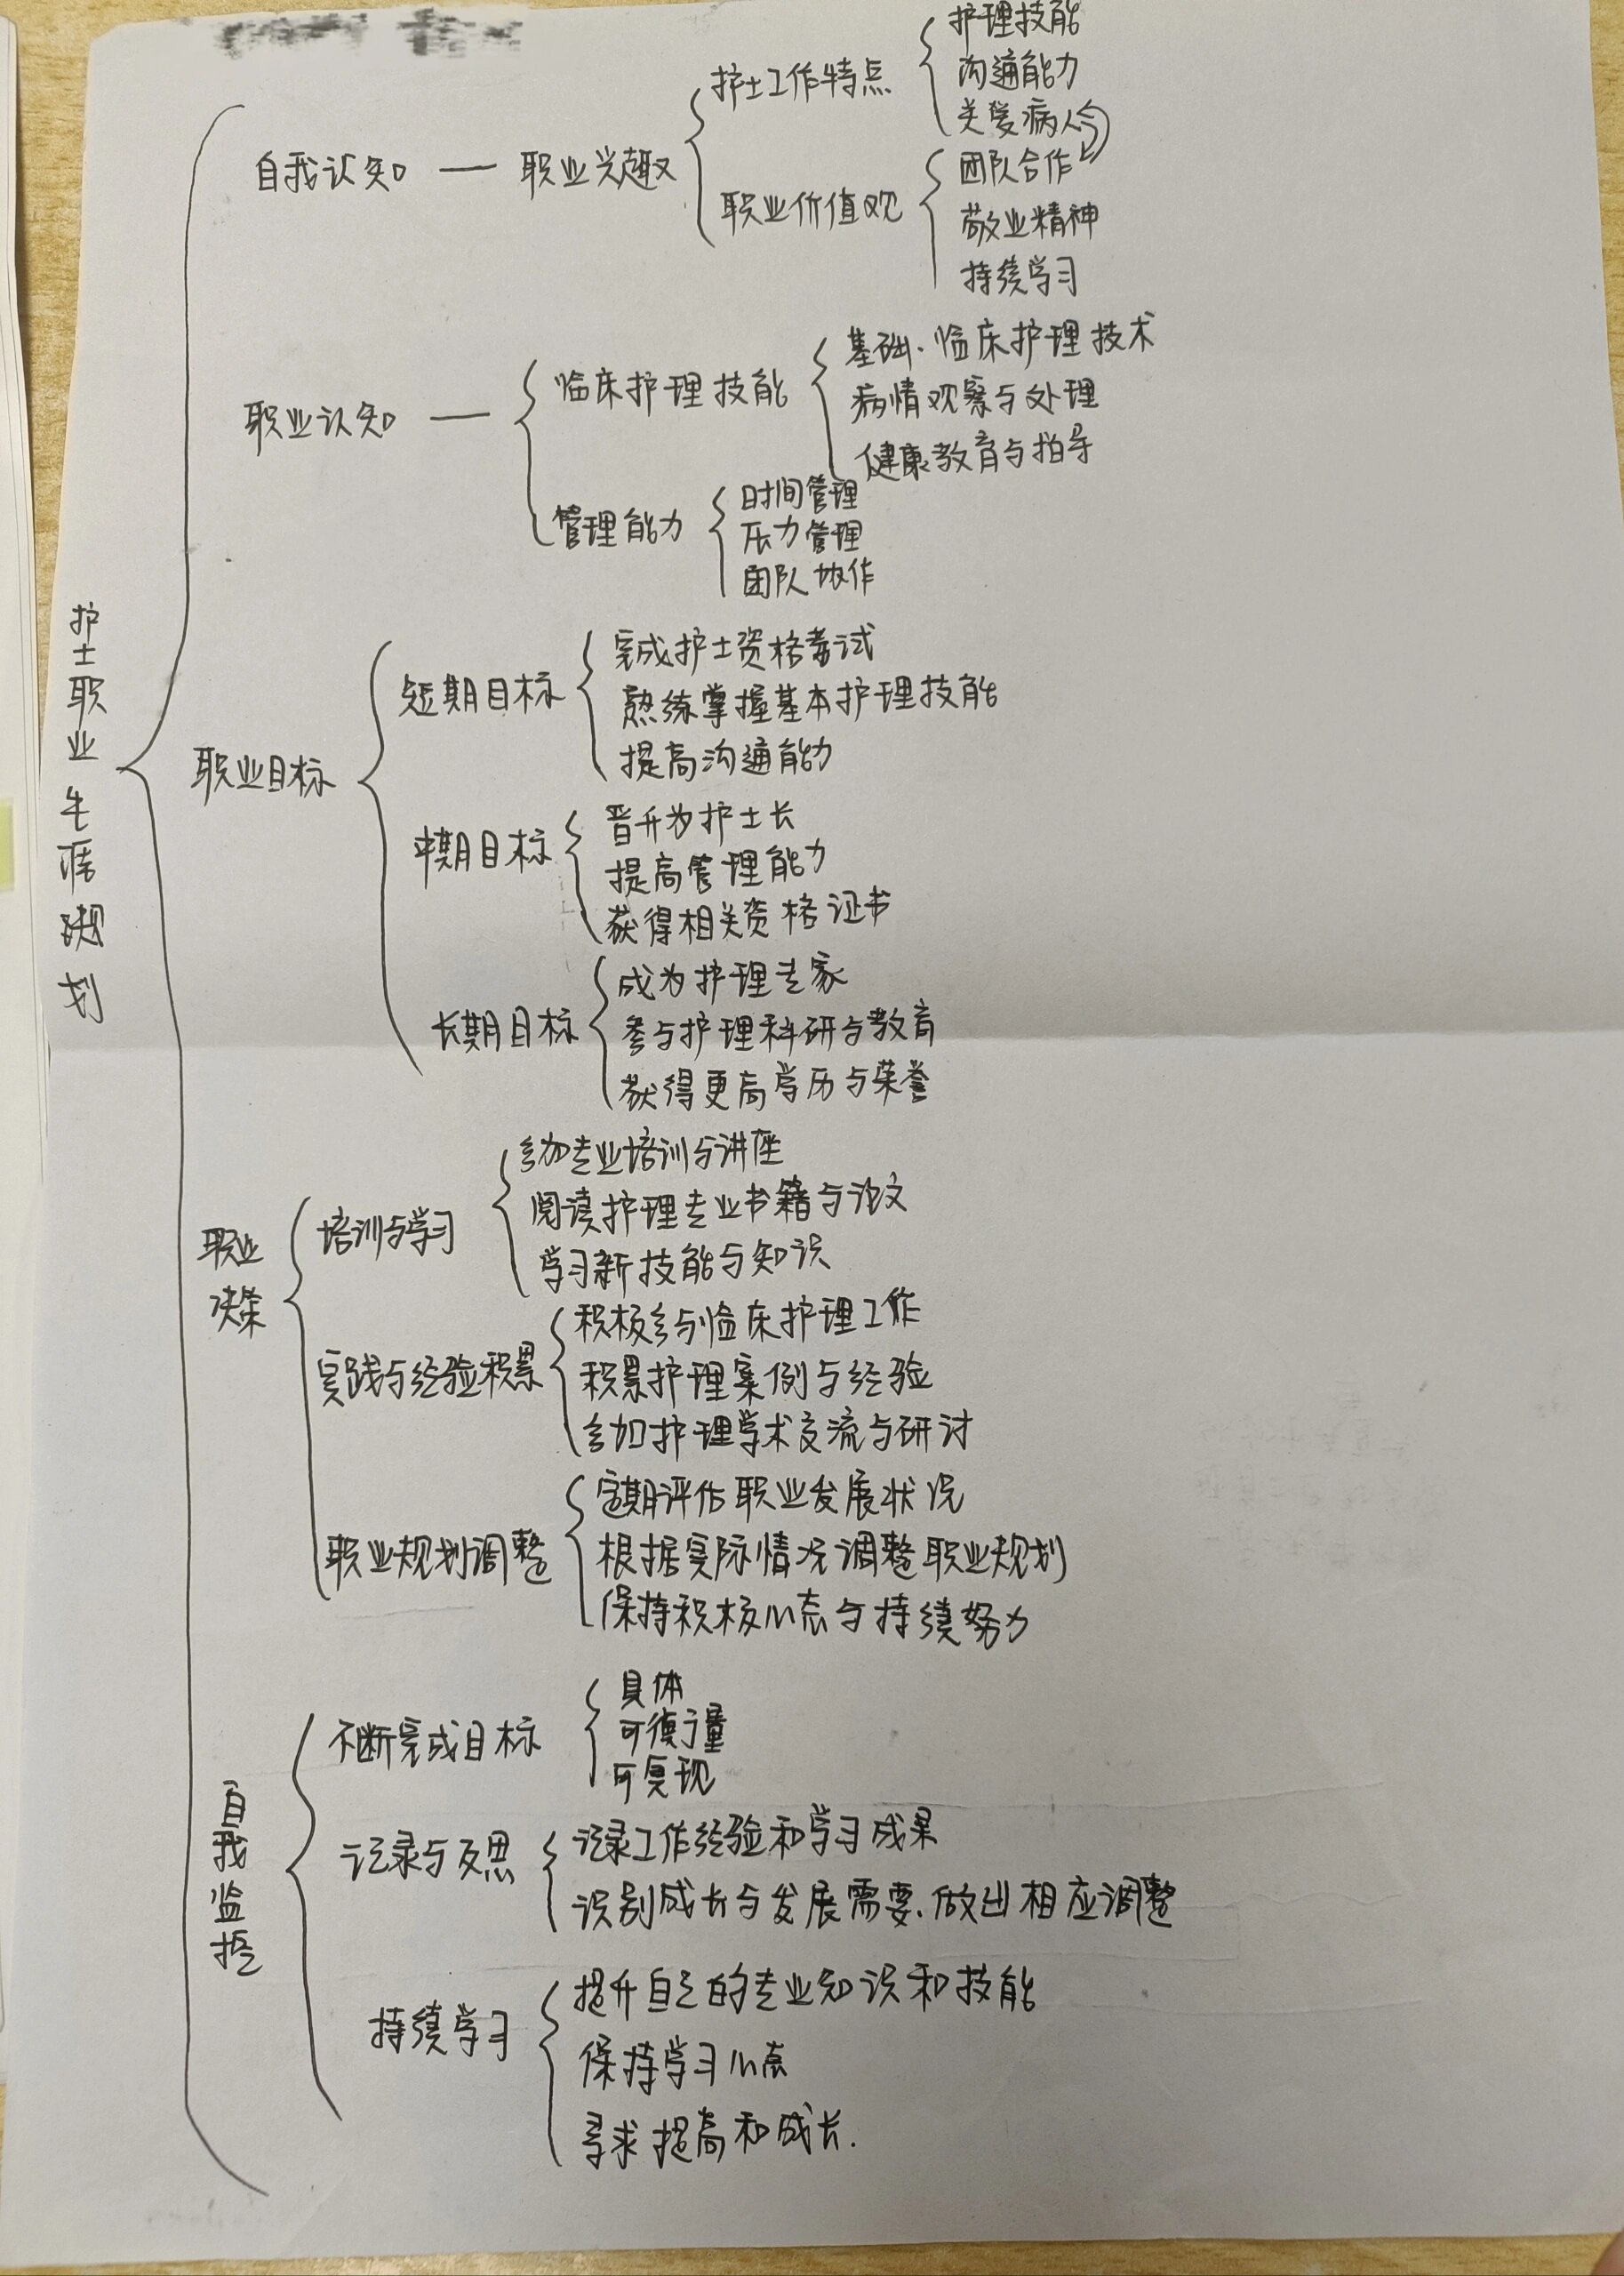 护士职业生涯规划
自我认知 — 职业兴趣
护士工作特点
护理技能
沟通能力
关爱病人
职业价值观
团队合作
敬业精神
持续学习
职业认知 —
临床护理技能
基础、临床护理技术
病情观察与处理
健康教育与指导
管理能力
时间管理
压力管理
团队协作
职业目标
短期目标
完成护士资格考试
熟练掌握基本护理技能
提高沟通能力
中期目标
晋升为护士长
提高管理能力
获得相关资格证书
长期目标
成为护理专家
参与护理科研与教育
获得更高学历与荣誉
职业
决策
培训与学习
参加专业培训与讲座
阅读护理专业书籍与论文
学习新技能与知识
实践与经验积累
积极参与临床护理工作
积累护理案例与经验
参加护理学术交流与研讨
职业规划调整
定期评估职业发展状况
根据实际情况调整职业规划
保持积极心态与持续努力
自我监控
不断完成目标
具体
可衡量
可复现
记录与反思
记录工作经验和学习成果
识别成长与发展需要、做出相应调整
持续学习
提升自己的专业知识和技能
保持学习心态
寻求提高和成长.